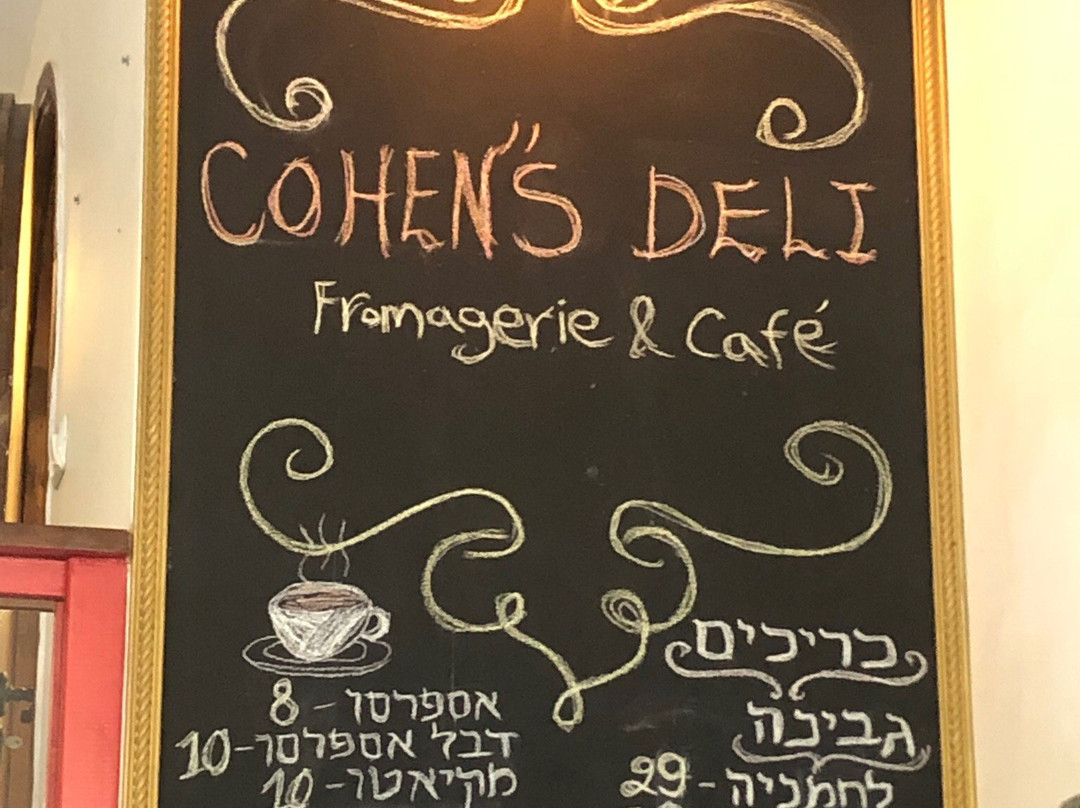 COHEN'S DELI
Fromagerie & Café
אספרסו - 8
דבל אספרסו - 10
מקיאטו - 10
כריכים
גבינה
לחמניה - 29